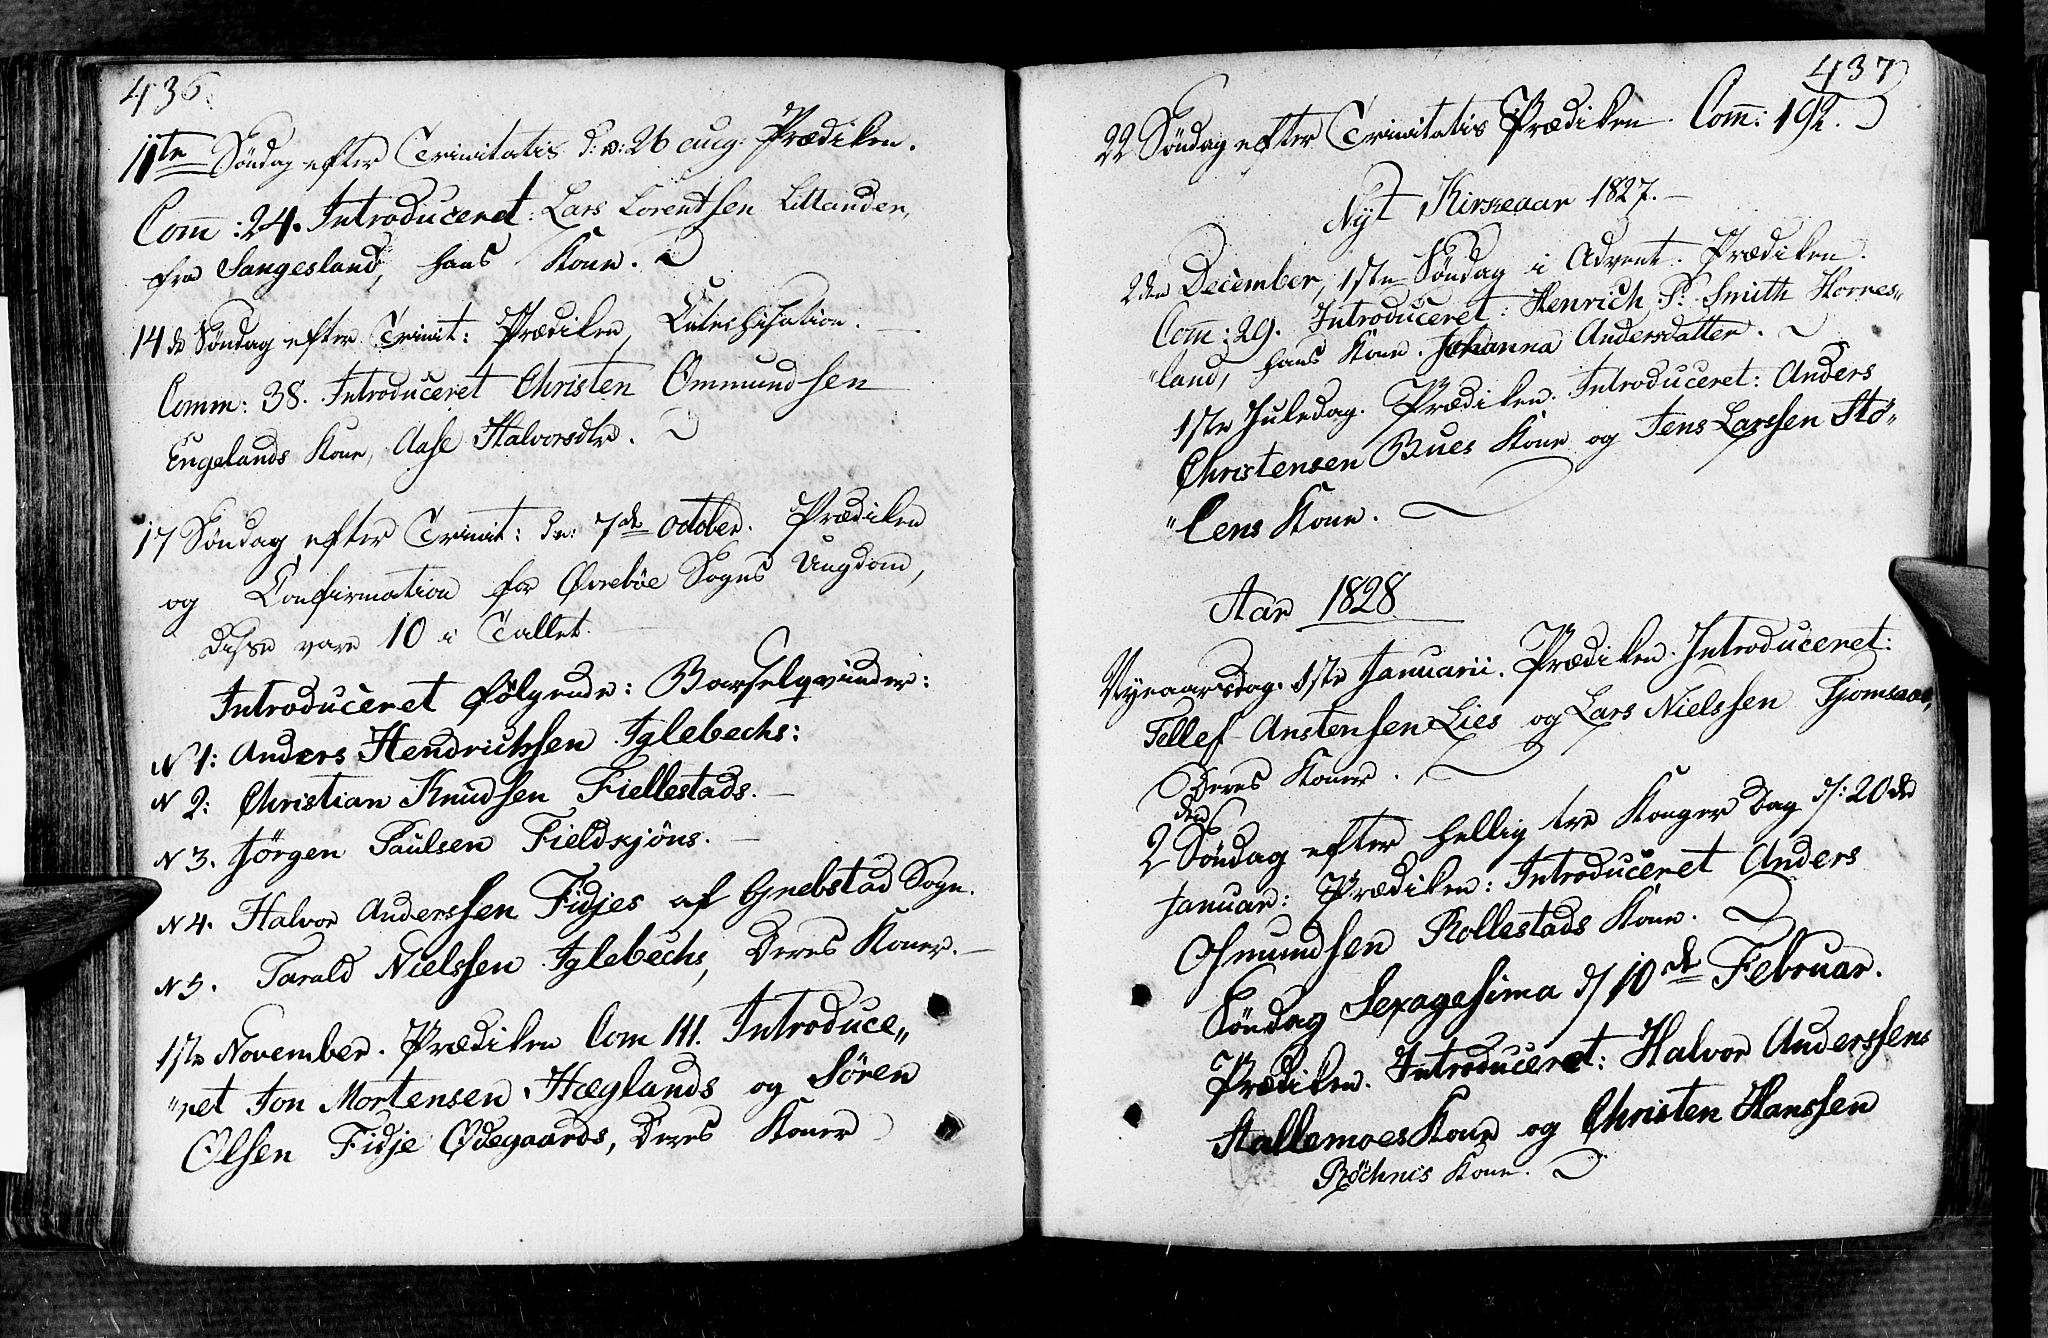 436
11te Søndag efter Trinitatis d: v: 26 aug: Prædiken.
Com̅: 24. Introduceret: Lars Lorentsen Littander,
fra Sangesland, hans Kone.
14de Søndag efter Trinit: Prædiken, Catechisation.
Comm: 38. Introduceret Christen Ommundsen
Engelands Kone, Aase Halvorsdtr.
17 Søndag efter Trinit: den 7de october. Prædiken
og Confirmation for Øvrebøe Sogns Ungdom,
Disse vare 10 i Tallet.
Introduceret følgende: Barselqvinder:
N 1: Anders Hendrichsen Iglebechs:
N 2: Christian Knudsen Fiellestads.
N 3. Jørgen Paulsen Fieldskjöns.
N 4. Halvor Anderssen Fidjes af Grebstad Sogn.
N 5. Tarald Nielssen Iglebechs, Deres Koner.
1ste November. Prædiken Com 111. Introduce„
„ret Jon Mortensen Hæglands og Sören
Olsen Fidje Ødegaards, Deres Koner
437
22 Søndag efter Trinitatis Prædiken. Com̅: 192.
Nyt Kirkeaar 1827.
2den December, 1ste Søndag i Advent. Prædiken.
Com̅: 29. Introduceret: Henrich P. Smith Horres„
„land, hans Kone. Johanna Andersdatter.
1ste Juledag. Prædiken. Introduceret: Anders
Christensen Bues Kone og Jens Larssen Stö„
„lens Kone.
Aar 1828
Nyeaarsdag 1ste Januarii. Prædiken. Introduceret:
Tellef Anstensen Lies og Lars Nielssen Tjomsaas,
Deres Koner.
den
2 Søndag efter hellig tre Konger Dag d/: 20de
Januar: Prædiken: Introduceret Anders
Osmundsen Rollestads Kone.
Söndag Sexagesima d/ 10de Februar.
Prædiken. Introduceret: Halvor Anderssens
Stallemoes Kone og Christen Hanssen
Kone.